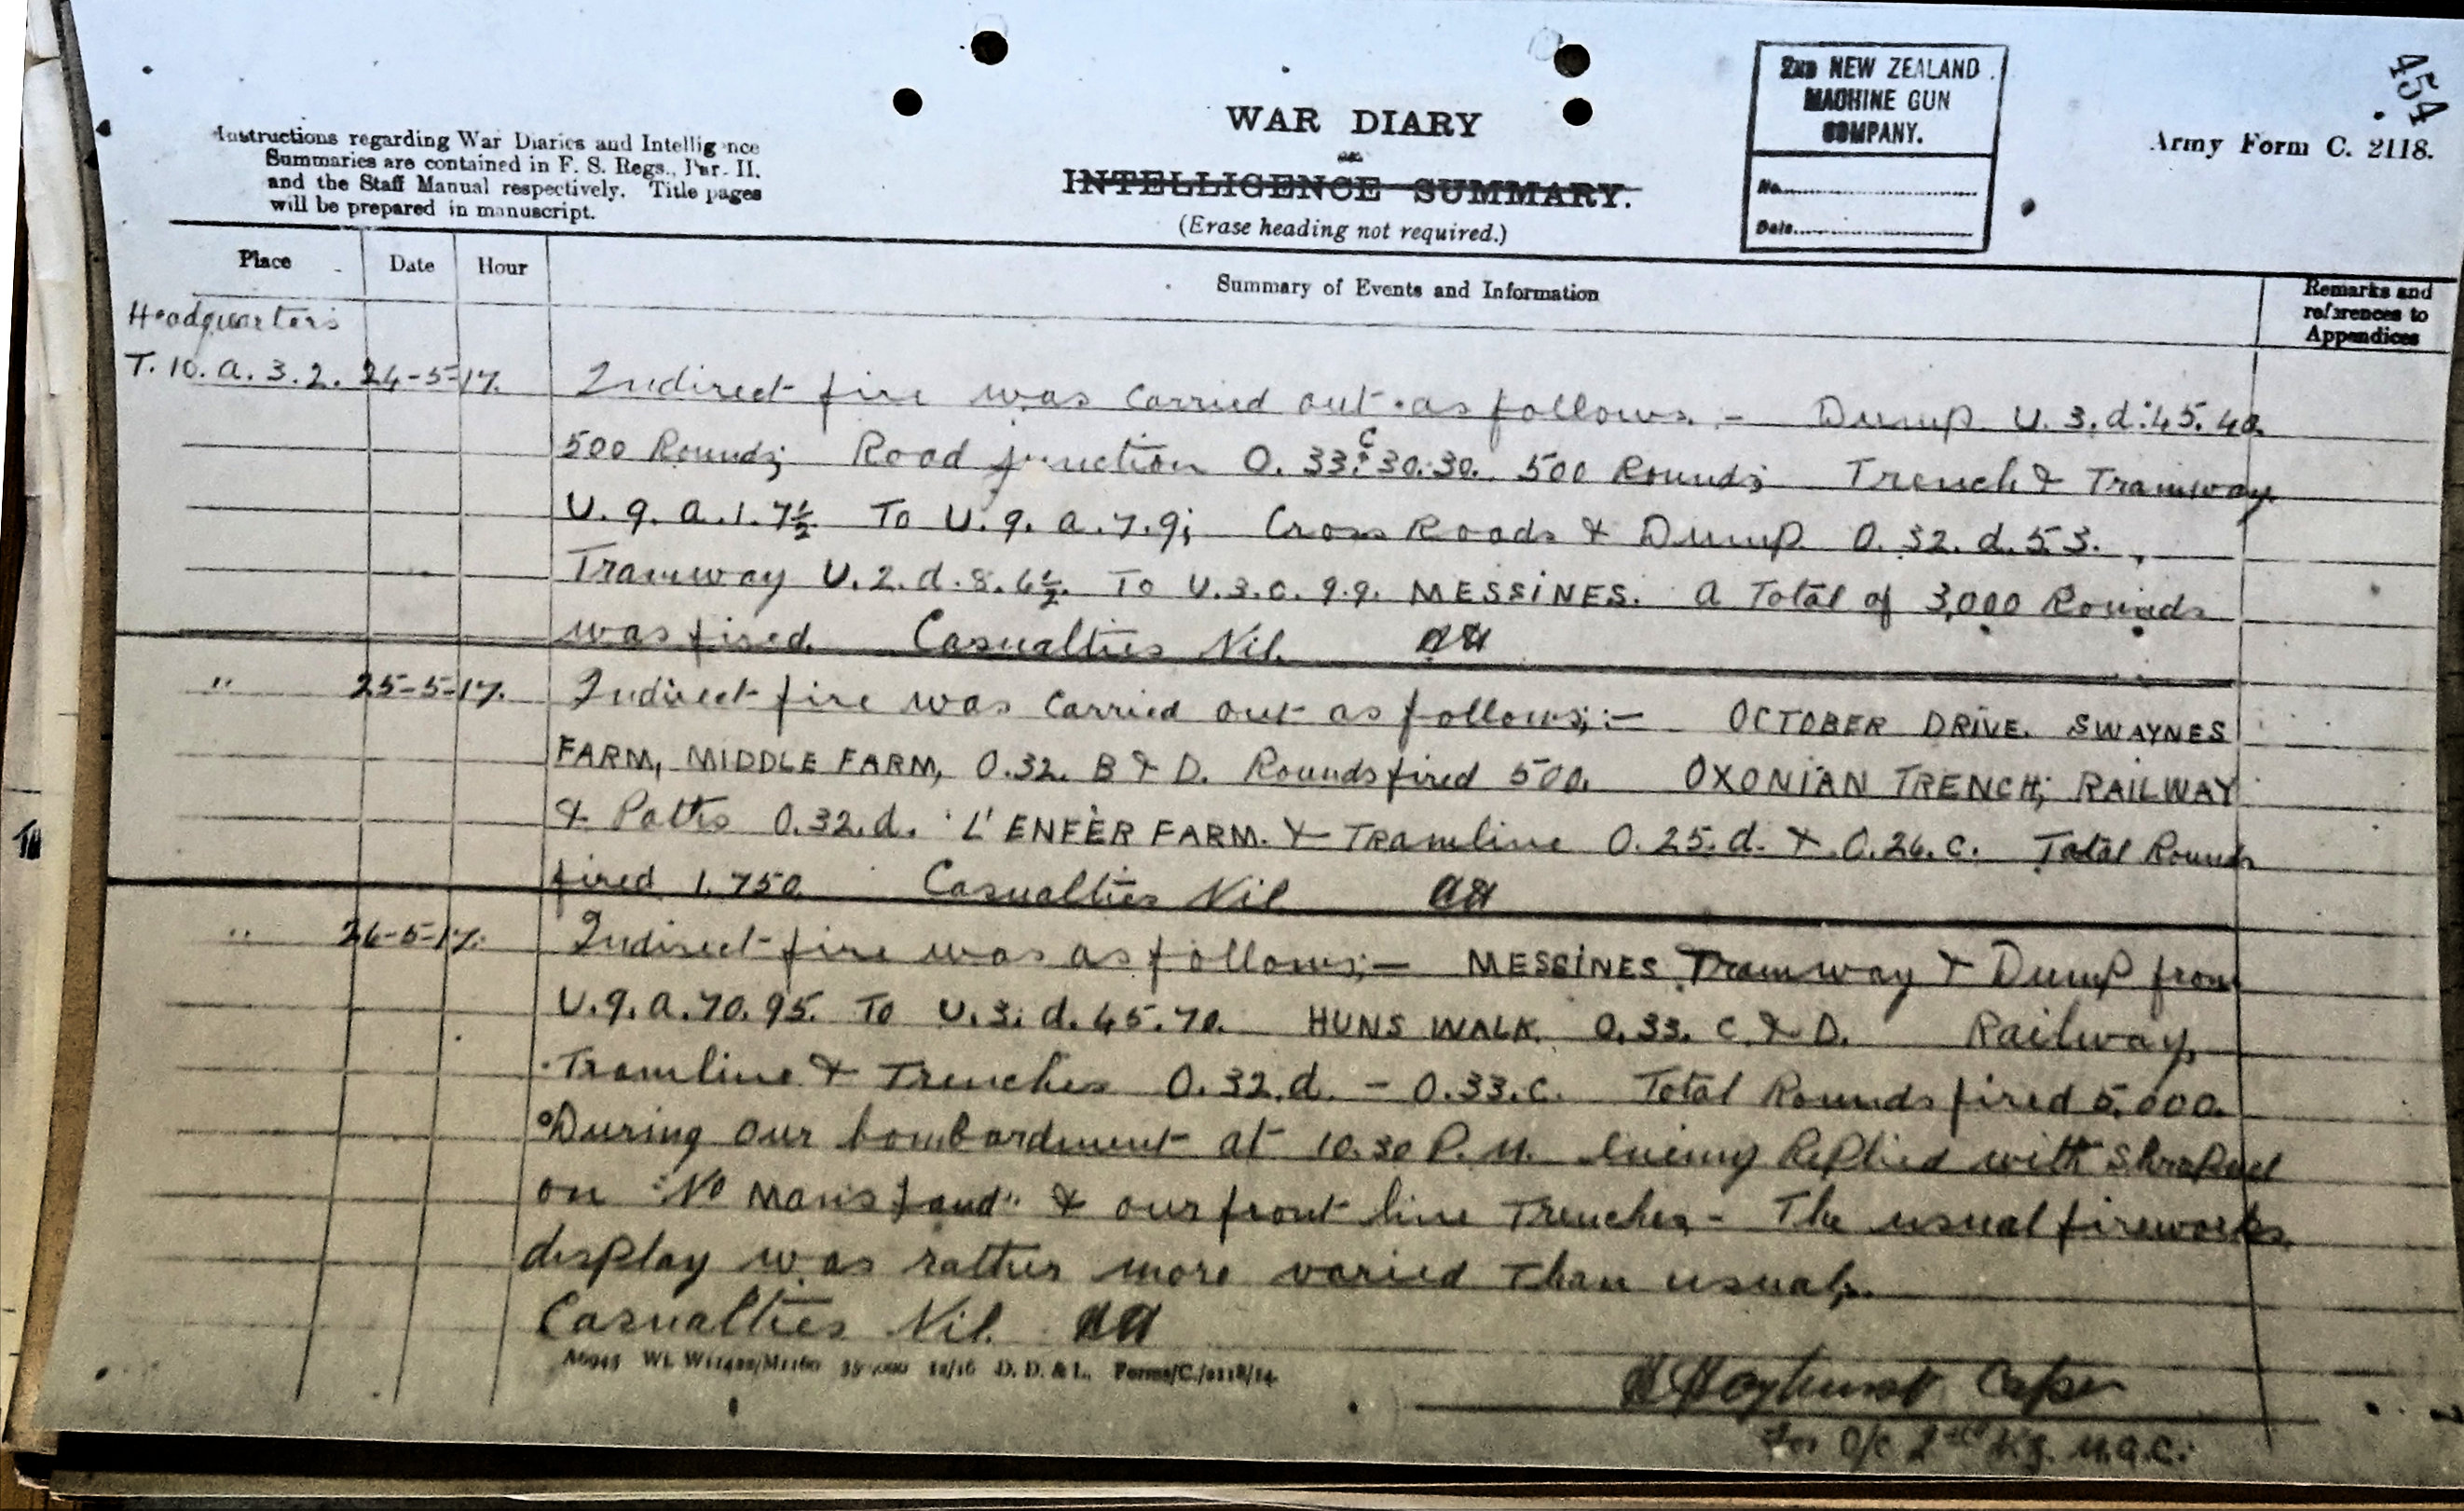 454
2ND NEW ZEALAND
MACHINE GUN
COMPANY.
No.
Date
Army Form C. 2118.
WAR DIARY
or
INTELLIGENCE SUMMARY.
(Erase heading not required.)
Instructions regarding War Diaries and Intelligence
Summaries are contained in F. S. Regs., Par. II.
and the Staff Manual respectively. Title pages
will be prepared in manuscript.
Place Date Hour Summary of Events and Information Remarks and
references to
Appendices
Headquarters
T. 10. a. 3. 2. 24-5-17. Indirect fire was carried out as follows. - Dump U. 3. d. 45. 40.
500 Rounds; Road junction O. 33. c 30. 30. 500 Rounds; Trench & Tramway
U. 9. a. 1. 7½ To U. 9. a. 7. 9; Cross Roads & Dump O. 32. d. 5.3.
Tramway U. 2. d. 8. 6½. To U. 3. c. 9. 9. MESSINES. A Total of 3,000 Rounds
was fired. Casualties Nil. AH
" 25-5-17. Indirect fire was carried out as follows;:- OCTOBER DRIVE. SWAYNES
FARM, MIDDLE FARM, O.32. B & D. Rounds fired 500. OXONIAN TRENCH; RAILWAY
& Paths O.32.d. L'ENFER FARM. & Tramline O.25.d. & O.26.c. Total Rounds
fired 1,750 Casualties Nil AH
" 26-5-17. Indirect fire was as follows;- MESSINES Tramway & Dump from
U.9.a.70.95. To U.3.d.45.70. HUNS WALK O.33. C & D. Railway,
Tramline & Trenches O.32.d. - O.33.c. Total Rounds fired 5,000.
During our bombardment at 10.30 P.M. Enemy Replied with Shrapnel
on "No Mans Land" & our front line Trenches - The usual fireworks
display was rather more varied Than usual.
Casualties Nil. AH
D. D. & L. Forms/C./2118/14
Hayhurst Capt
For O/c 2nd N.Z. M.G.C.